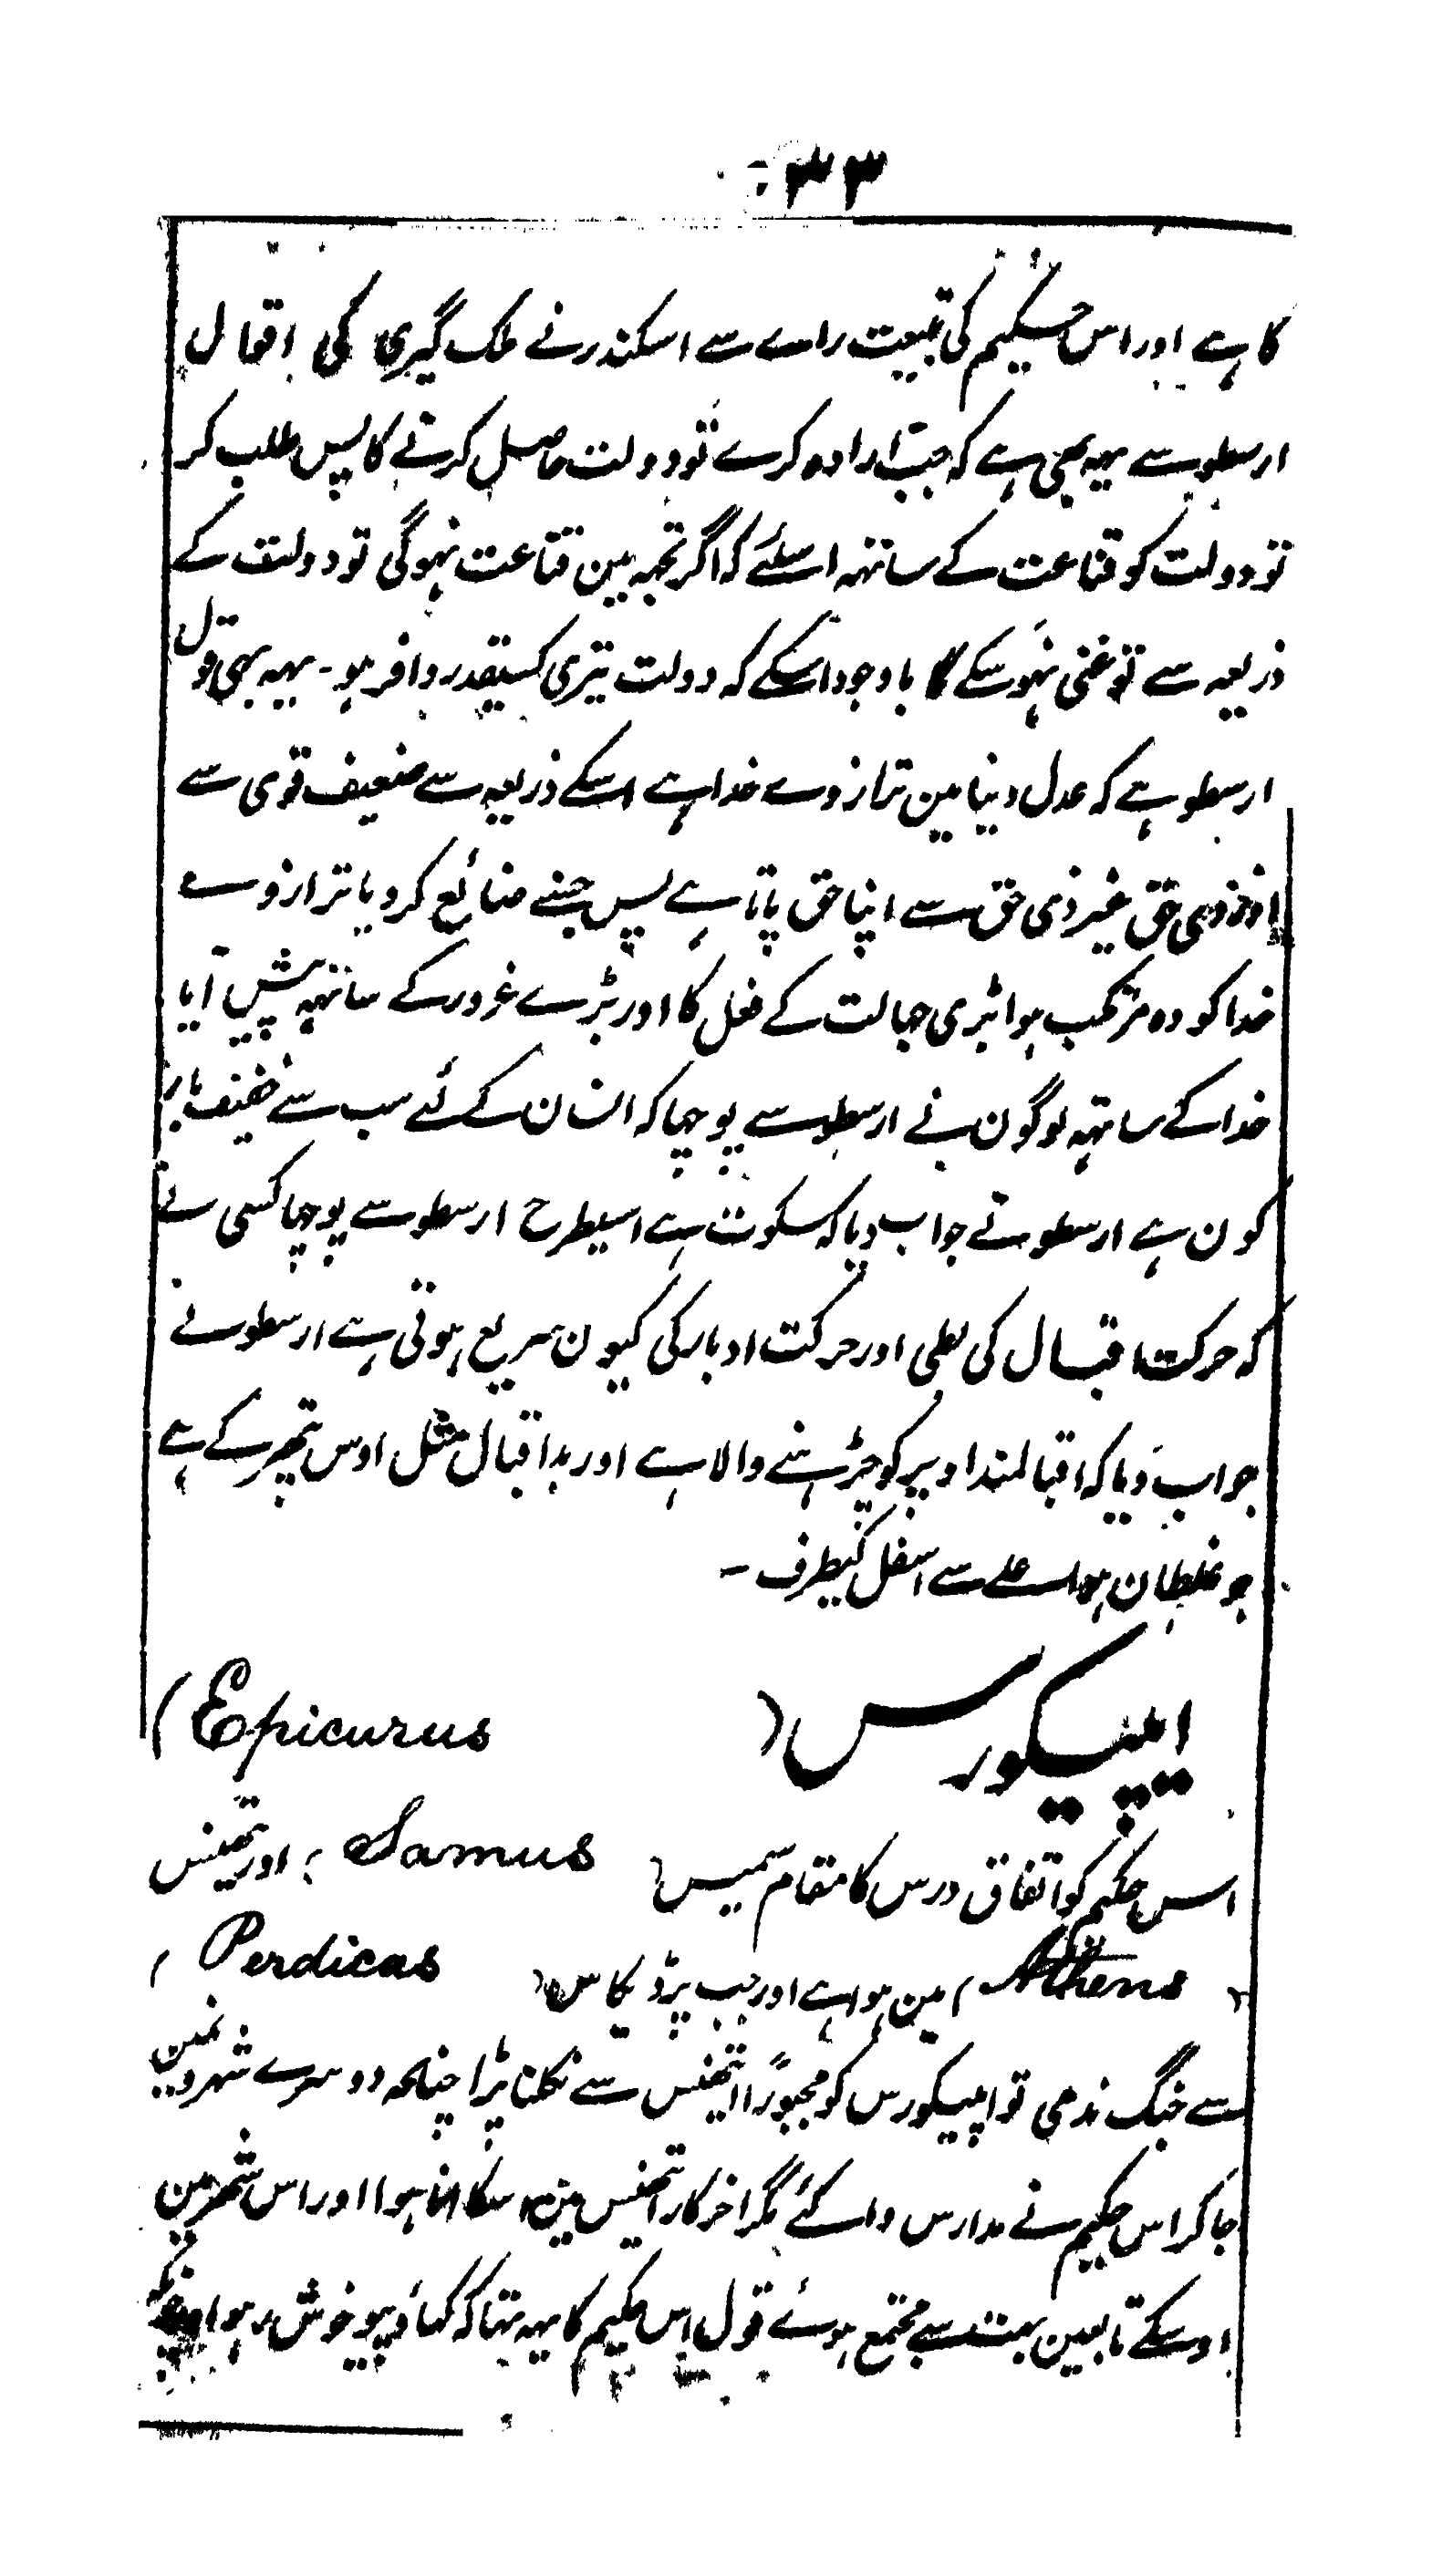 ٣٣
کا ہے اور اس حکیم کی تبعیت رائے سے اسکندر نے ملک گیری کی اقوال
ارسطو سے یہہ بھی ہے کہ جب ارادہ کرے تو دولت حاصل کرنے کا پس طلب کر
تو دولت کو قناعت کے ساتہہ اسلئے کہ اگر تجہہ مین قناعت نہوگی تو دولت کے
ذریعہ سے تو غنی نہوسکے گا باوجود اسکے کہ دولت تیری کسیقدر وافر ہو ۔ یہہ بھی قول
ارسطو ہے کہ عدل دنیا مین ترازوے خدا ہے اسکے ذریعہ سے ضعیف قوی سے
اور ذی حق غیر ذی حق سے اپنا حق پاتا ہے پس جسنے ضائع کردیا ترازوے
خدا کو وہ مرتکب ہوا بڑی جہالت کے فعل کا اور بڑے غرور کے ساتہہ پیش آیا
خدا کے ساتہہ لوگون نے ارسطو سے پوچہا کہ انسان کے لئے سب سے خفیف بار
کون ہے ارسطو نے جواب دیا کہ سکوت ہے اسیطرح ارسطو سے پوچہا کسی نے
کہ حرکت اقبال کی بطی اور حرکت ادبار کی کیون سریع ہوتی ہے ارسطو نے
جواب دیا کہ اقبالمند اوپر کو چڑہنے والا ہے اور بداقبال مثل اوس پتھر کے ہے
جو غلطان ہو اعلے سے اسفل کیطرف ۔
ایپیکورس (Epicurus)
اس حکیم کو اتفاق درس کا مقام سمیس (Samus) اور تھینس
(Athens) مین ہوا ہے اور جب پرڈیکاس (Perdicas)
سے جنگ ندھی تو اپیکورس کو مجبوراً اتھینس سے نکلنا پڑا چنانچہ دوسرے شہرونمین
جاکر اس حکیم نے مدارس وا کئے مگر اخرکار اتھینس مین اسکا انا ہوا اور اس شہر مین
اوسکے تابعین بہت سے مجتمع ہوئے قول اس حکیم کا یہہ تہا کہ کھاؤ پیو خوش رہو